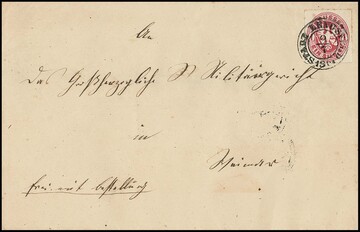 An
Das Großherzogliche S Militärgericht
in
Weimar
frei mit Bestellung